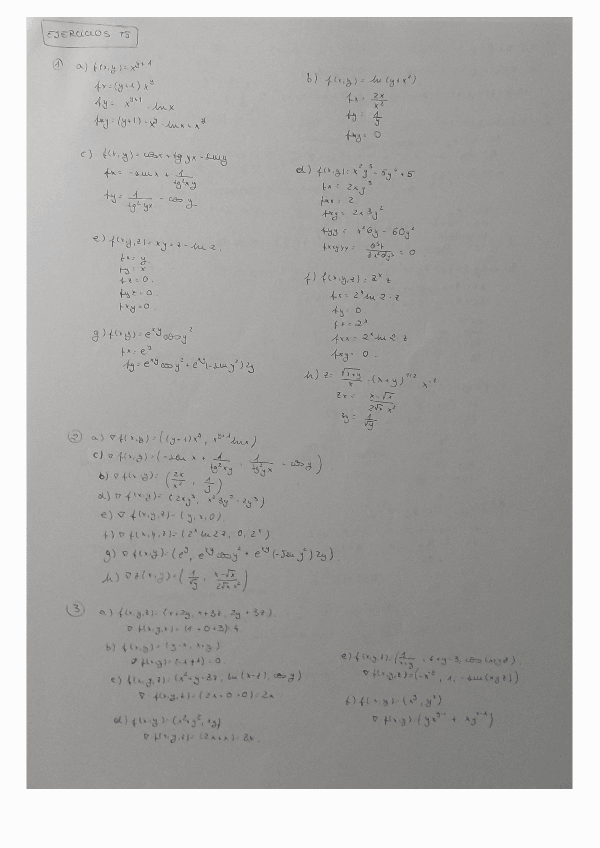 EJERCICIOS T5
① a) f(x,y) = x^{y+1}
fx = (y+1) x^y
fy = x^{y+1} · ln x
fxy = (y+1) · x^y · ln x + x^y
b) f(x,y) = ln (y+x²)
fx = 2x/x²
fy = 1/y
fxy = 0
c) f(x,y) = cos x + tg yx - sen y
fx = -sen x + 1/tg²xy
fy = 1/tg²yx - cos y
d)
fx = 2xy³
fxx = 2
fxy = 2x3y²
fyy = x²6y - 60y²
= 0
e) f(x,y,z) = xy + z - ln 2.
fx = y
fy = x
fz = 0.
fyx = 0.
fxy = 0.
f) f(x,y,z) = 2^x z
fx = 2^x ln 2 · z
fy = 0
fz = 2^x
fxx = 2^x ln 2 · z
fxy = 0.
g) f(x,y) = e^{xy} cos y²
fx = e^y
fy = e^{xy} cos y² + e^{xy} (-sen y²) 2y
h) z = √(x+y)/x = (x+y)^{1/2} x^{-1}
zx = (x-√x)/(2√x x²)
zy = 1/√y
② a) ∇ f(x,y) = ((y+1) x^y, x^{y+1} ln x)
c) ∇ f(x,y) = (-sen x + 1/tg²xy, 1/tg²yx - cos y)
b) ∇ f(x,y) = (2x/x², 1/y)
d) ∇ f(x,y) = (2xy³,
e) ∇ f(x,y,z) = (y, x, 0).
f) ∇ f(x,y,z) = (2^x ln 2 z, 0, 2^x)
g) ∇ f(x,y) = (e^y, e^{xy} cos y² + e^{xy} (-sen y²) 2y)
h) ∇ z(x,y) = (1/√y, (x-√x)/(2√x x²))
③ a) f(x,y,z) = (x+2y, x+3z, 2y+3z).
∇ f(x,y,z) = (1+0+3) = 4
b) f(x,y) = (y-x, x+y)
= 0
c) f(x,y,z) = (x²+y-3z, ln (x-z), cos y)
∇ f(x,y,z) = (2x+0+0) = 2x
d) f(x,y) = (x²+y², xy)
∇ f(x,y,z) = (2x+x) = 3x.
e) f(x,y,z) =
∇ f(x,y,z) = (-x^{-2}, 1, -sen(xyz))
f) f(x,y) = (x^y, y^x)
∇ f(x,y) = (yx^{y-1} + xy^{x-1})